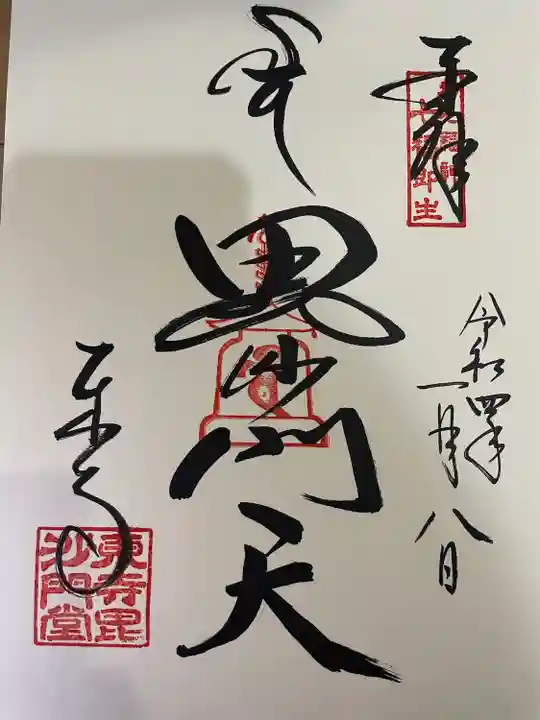 奉拝
令和四年
一月八日
毘沙門天
東寺
東寺毘
沙門堂